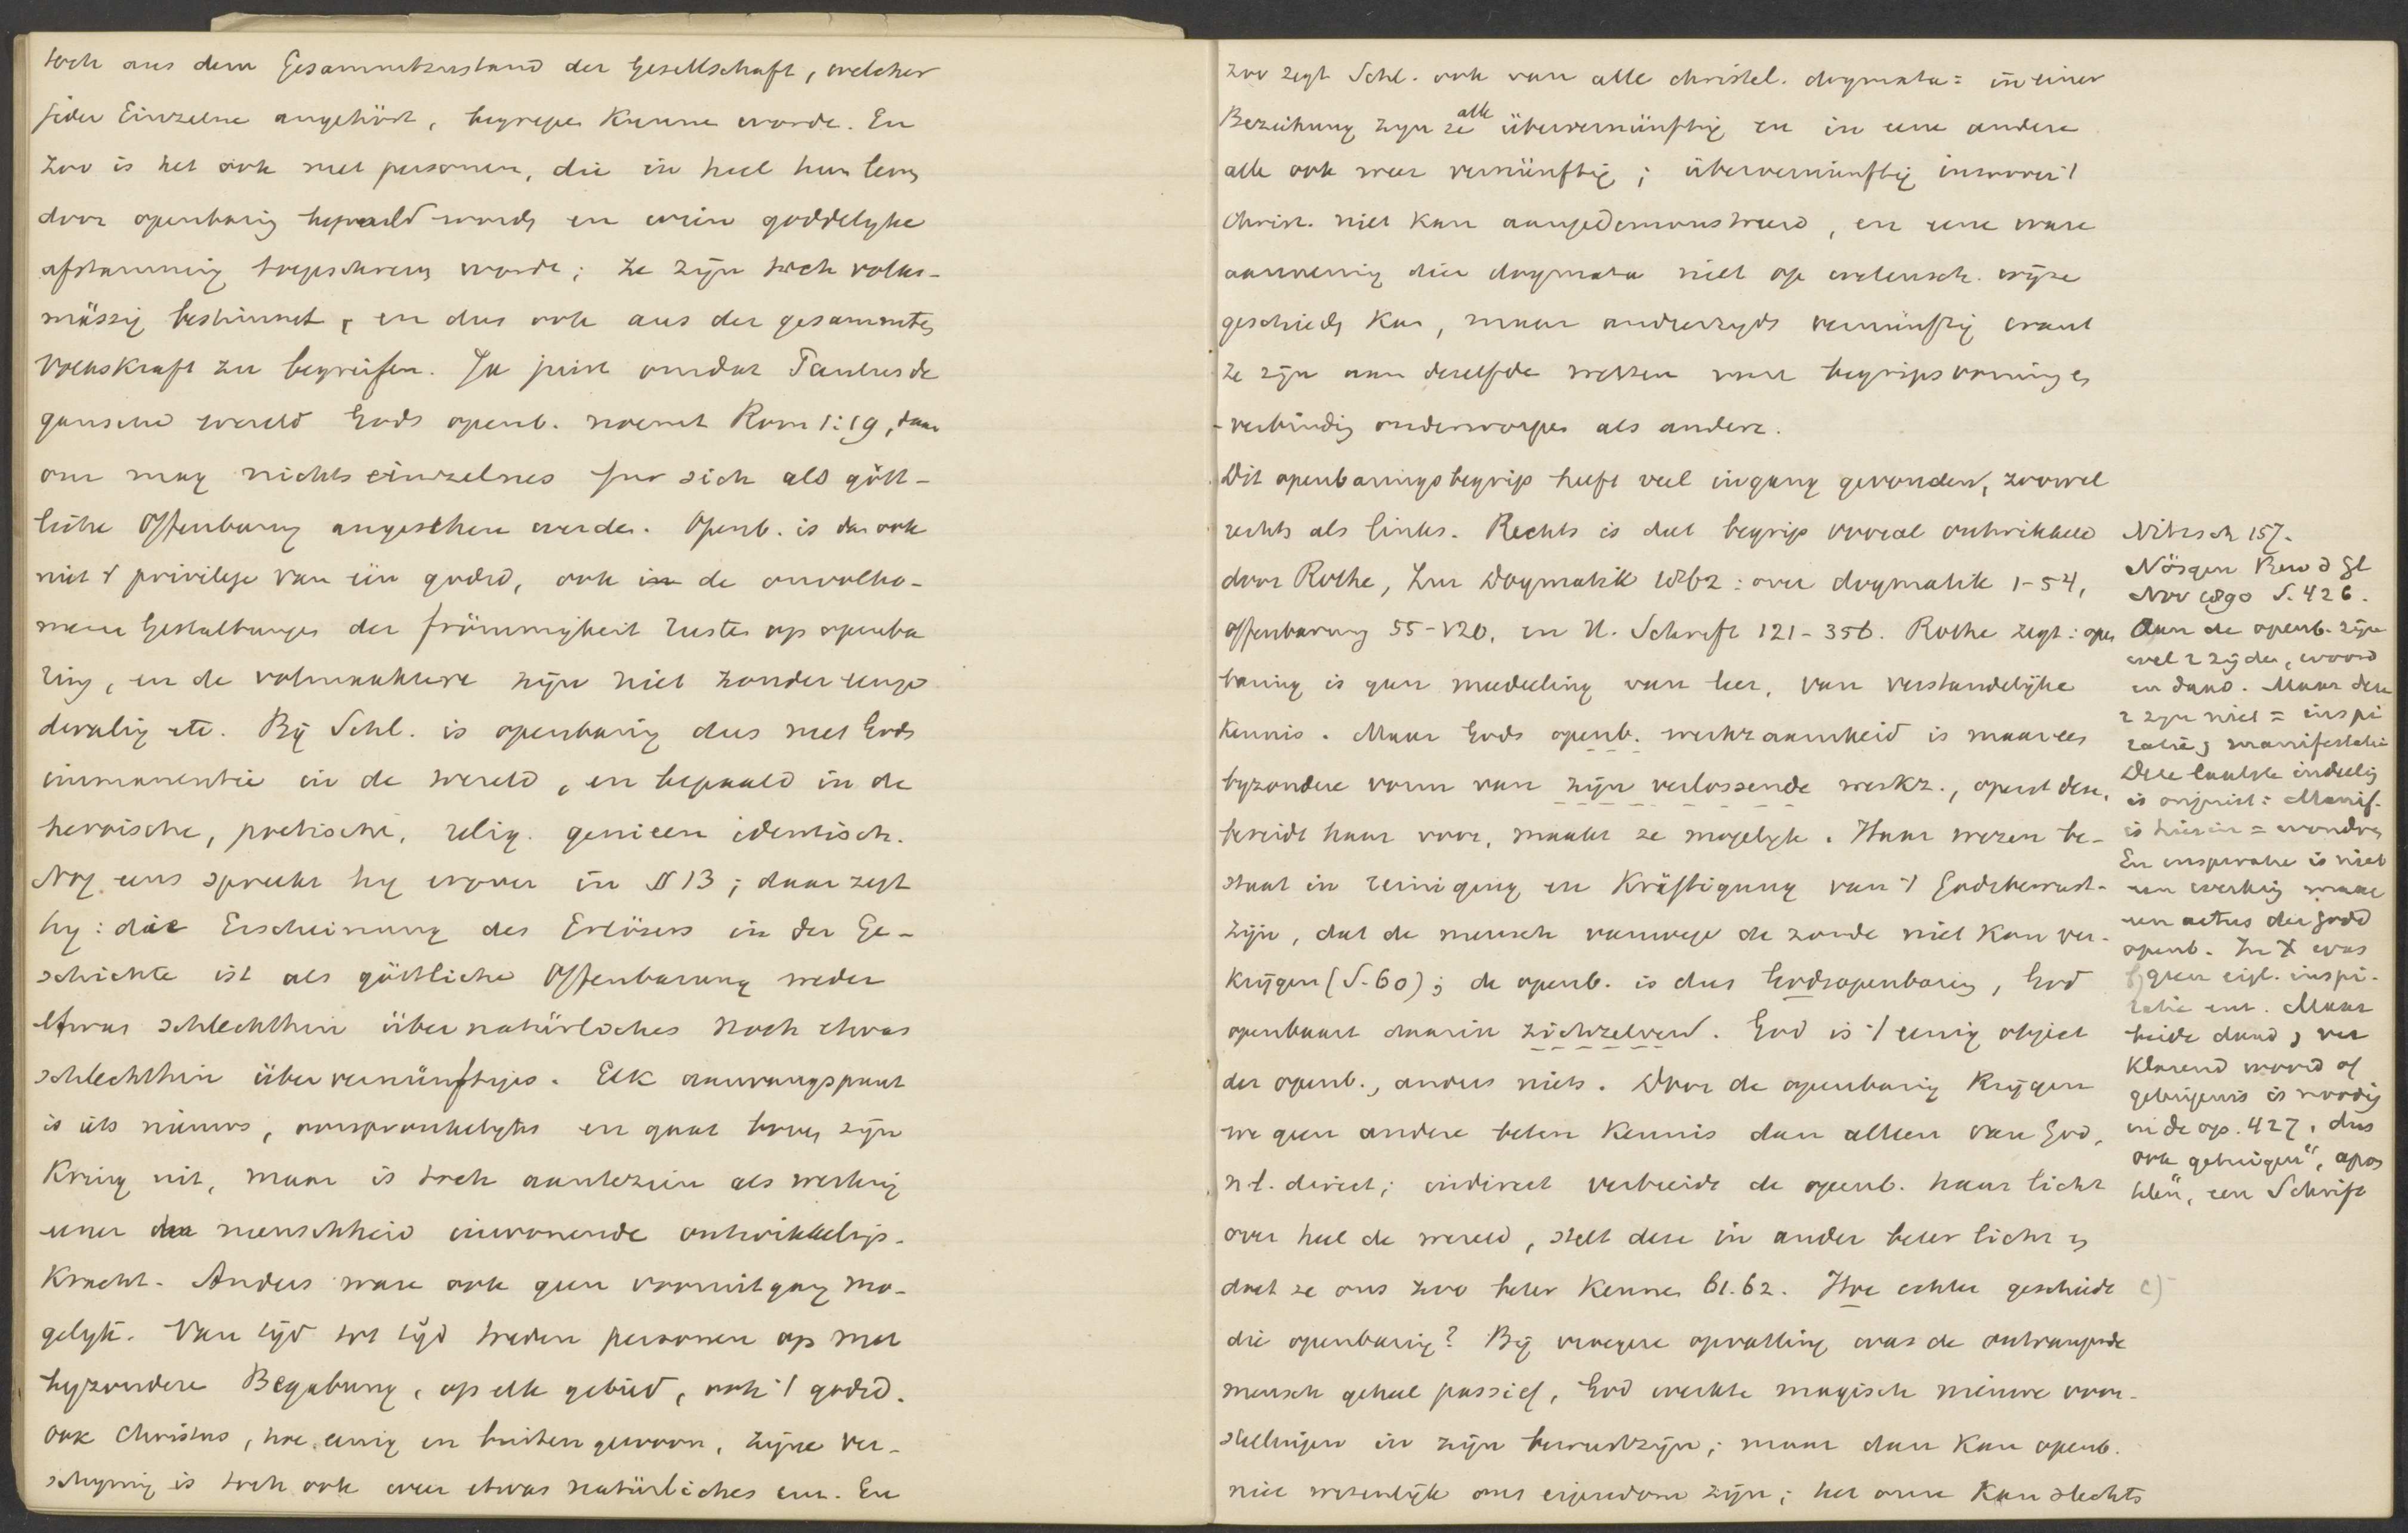 toch aus dem Gesammtzustand der Gesellschaft, welcher
jeder Einzelne angehört, begrepen kunne worde. En
zoo is het ook met personen, die in heel hun leven
door openbaring bepaald worden en wien goddelyke
afstamming toegeschreven worde; ze zijn toch volks-
mässig bestimmt, en dus ook aus der gesammten
Volkskraft zu begreifen. Ja juist omdat Paulus de
gansche wereld Gods openb. noemt Rom 1:19, daar
om mag nichts einzelnes für sich als gött-
liche Offenbarung angesehen werden. Openb. is dan ook
niet 't privilege van één godsd, ook in de onvolko-
mene Gestaltungen der frömmigheit rusten op openba
ring, en de volmaaktere zijn niet zonder
etc. Bij Schl. is openbaring dus met Gods
immanentie in de wereld, en bepaald in de
heroische, poetische, relig. genieen identisch.
Nog eens spreekt hy erover in § 13; daar zegt
hy: die Erscheinung des Erlösers in der Ge-
schichte ist als göttliche Offenbarung weder
etwas schlechthin übernatürliches noch etwas
schlechthin übervernünftiges. Elk aanvangspunt
is iets nieuws, oorspronkelyks en gaat boven zijn
kring uit, maar is toch aantezien als werking
eener de menschheid inwonende ontwikkelings-
kracht. Anders ware ook geen vooruitgang mo-
gelyk. Van tijd tot tijd treden personen op met
byzondere Begabung, op elk gebied, ook 't godsd.
Ook Christus, hoe eenig en buitengewoon, zijne ver-
schyning is toch ook weer etwas natürliches enz. En
zoo zegt Schl. ook van alle christel. dogmata: in einer
Beziehung zyn ze alle übervernünftig en in eene andere
alle ook weer vernünftig; übervernünftig inzoover 't
Christ. niet kan aangedemonstreerd, en eene ware
aanneming dier dogmata niet op wetensch. wijze
geschieden kan, maar anderzyds vernünftig want
ze zijn aan dezelfde wetten van begripsvorming en
-verbinding onderworpen als andere.
Dit openbaringsbegrip heeft veel ingang gevonden, zoowel
rechts als links. Rechts is dat begrip vooral ontwikkeld
door Rothe, Zur Dogmatik 1862: over dogmatik 1-54,
offenbarung 55-120, en H. Schrift 121-356. Rothe zegt: open
baring is geen mededeeling van leer, van verstandelijke
kennis. Maar Gods openb. werkzaamheid is maar een
byzondere vorm van zijn verlossende werkz., opent deze,
bereidt haar voor, maakt ze mogelyk. Haar wezen be-
staat in reiniging en Kräftigung van 't Godsbewust-
zijn, dat de mensch vanwege de zonde niet kan ver-
krijgen (S. 60); de openb. is dus Godsopenbaring, God
openbaart daarin zichzelven. God is 't eenig object
der openb., anders niets. Door de openbaring krijgen
we geen andere betere kennis dan alleen van God,
n.l. direct; indirect verbreidt de openb. haar licht
over heel de wereld, stelt deze in ander beter licht en
doet ze ons zoo beter kennen 61.62. Hoe echter geschiedt
die openbaring? Bij vroegere opvatting was de ontvangende
mensch geheel passief, God werkte magisch nieuwe voor-
stellingen in zijn bewustzijn; maar dan kan openb.
niet wezenlijk ons eigendom zijn; het onze kan slechts
Nitzsch 157.
Nösgen Bew d Gl
Nov 1890 S. 426.
Aan de openb. zijn
wel 2 zijden, woord
en daad. Maar deze
2 zyn niet = inspi
ratie en manifestatie
Deze laatste indeeling
is onjuist: Manif.
is hierin = wonder
En inspiratie is niet
een werking maar
een actus der godd
openb. In X was
geen eigl. inspi-
ratie enz. Maar
beide daad en ver
klarend woord of
getuigenis is noodig
in de op. 427, dus
ook getuigen, apos
telen, een Schrift
c)